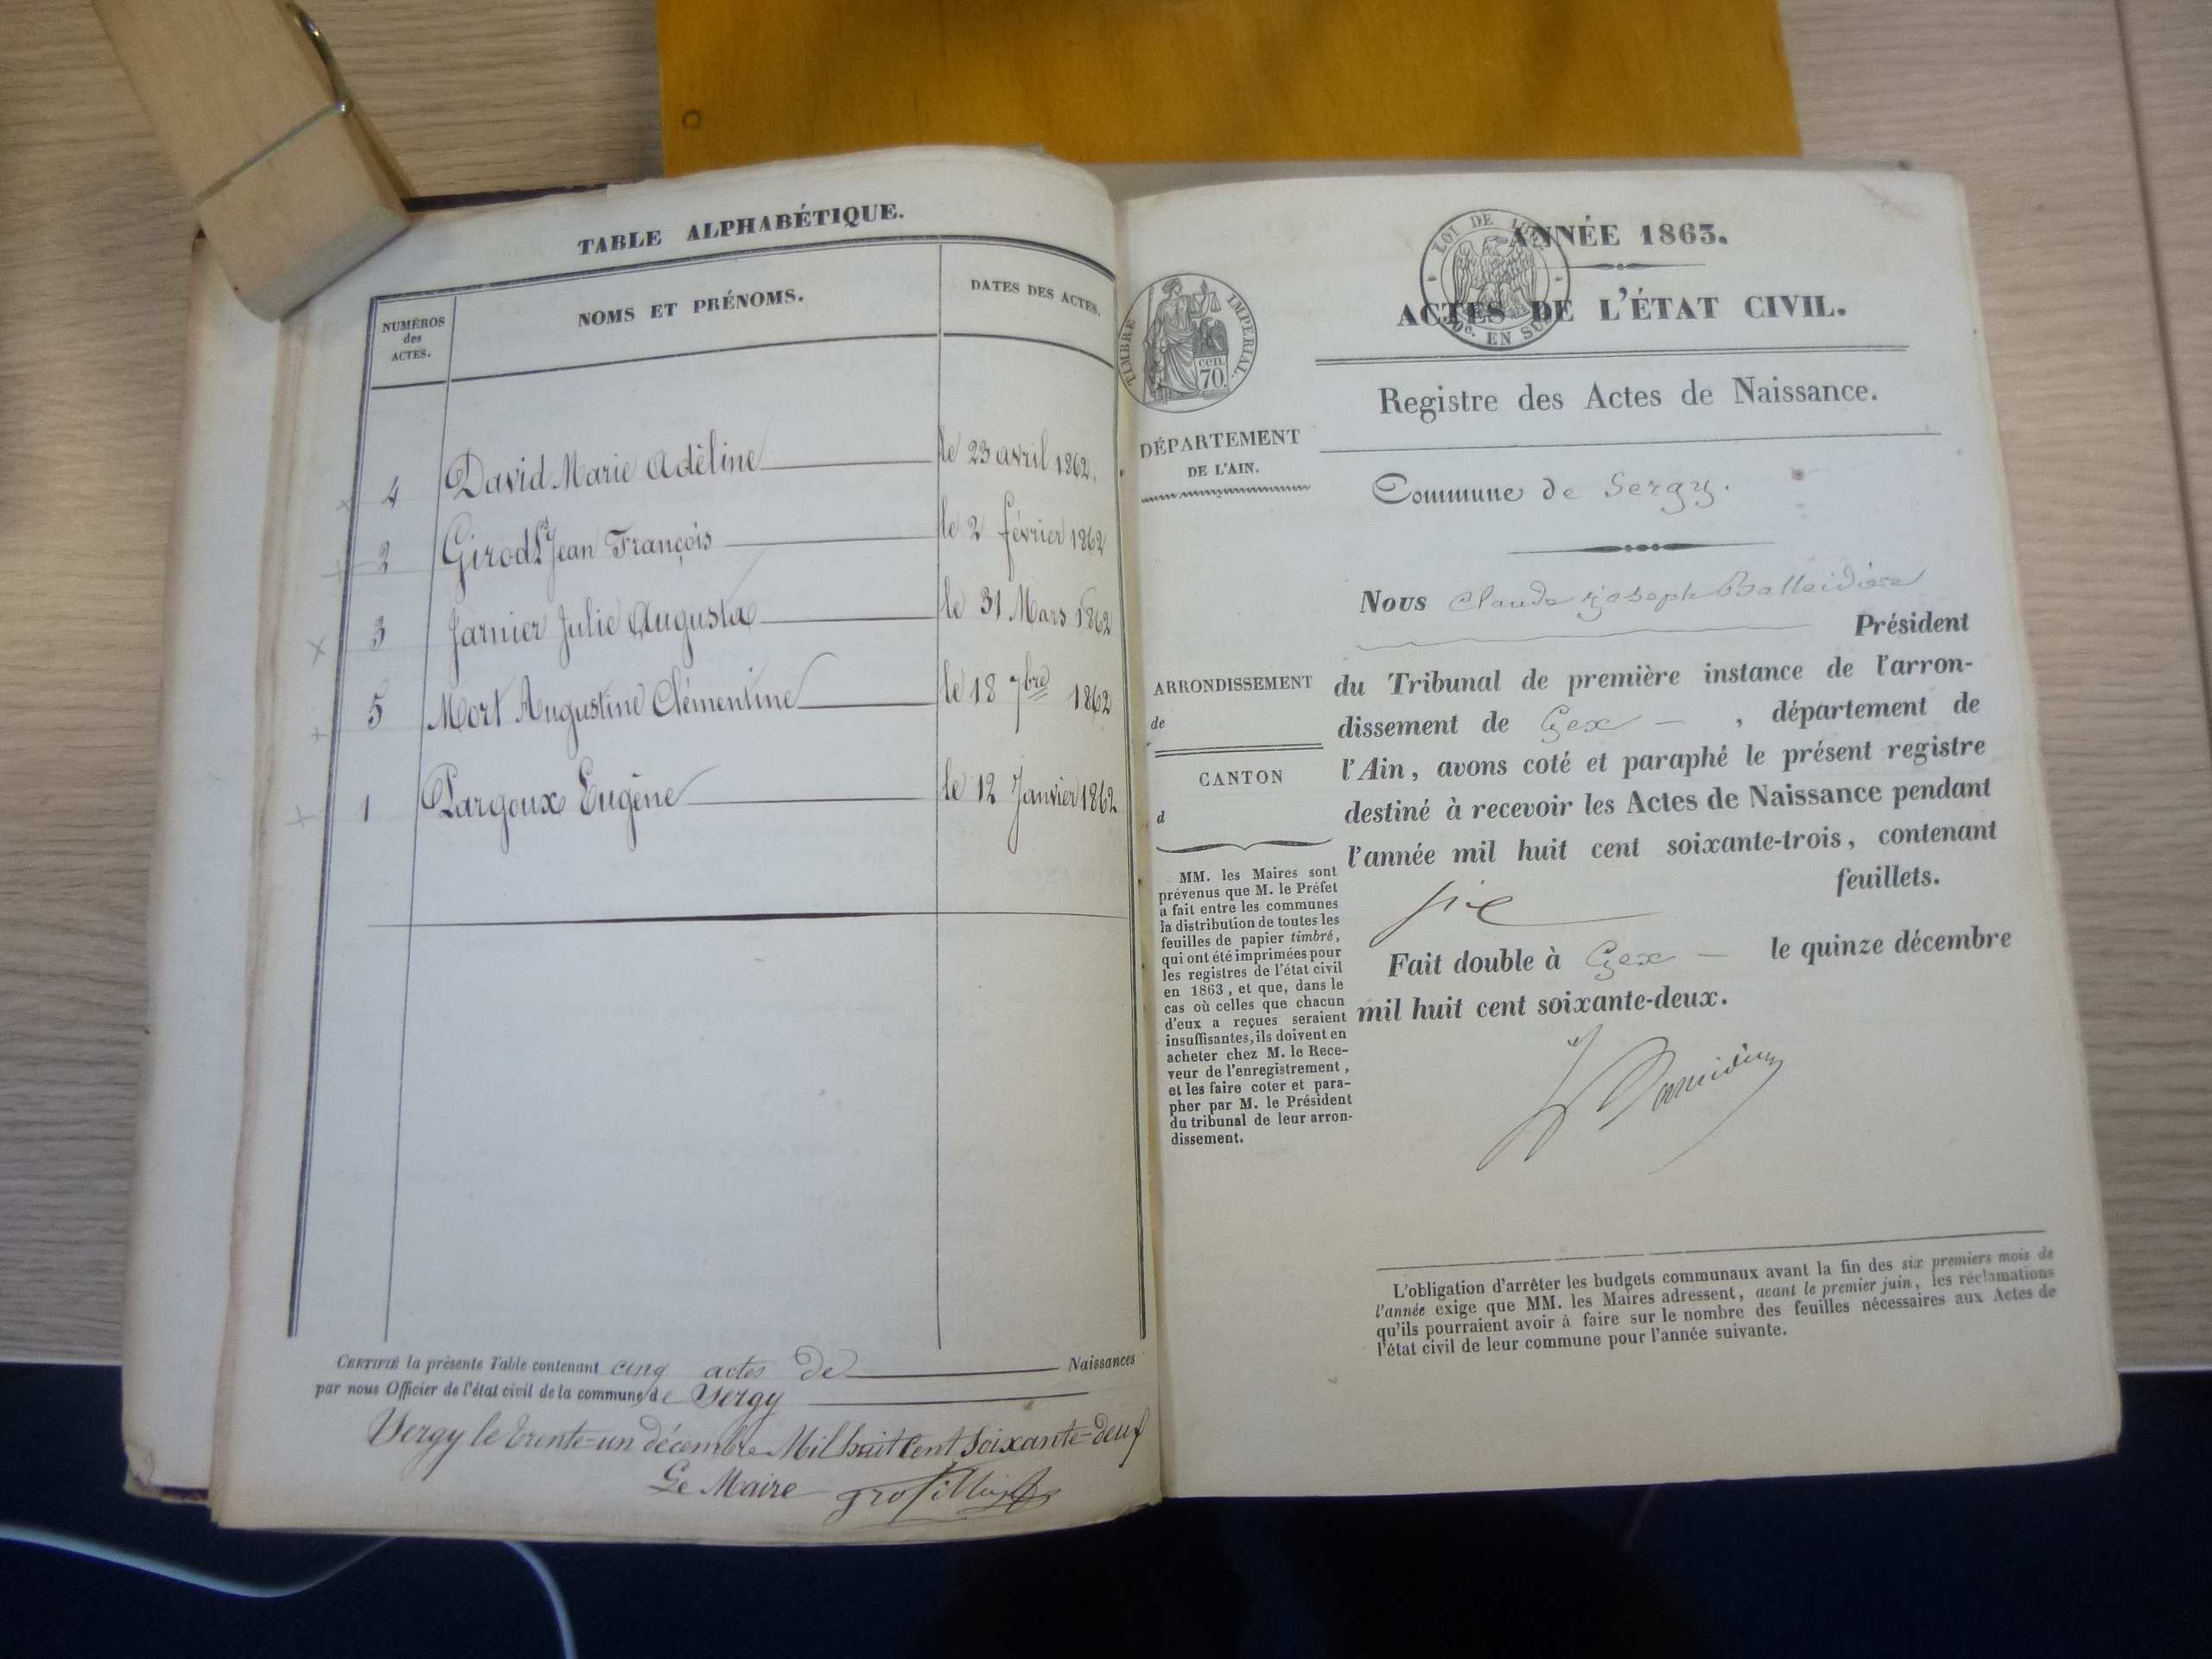 TABLE ALPHABÉTIQUE.
NUMÉROS des ACTES.
NOMS ET PRÉNOMS.
DATES DES ACTES.
4 David Marie Adéline le 23 avril 1862.
2 Girod Jean François le 2 février 1862
3 Jarnier Julie Augusta le 31 Mars 1862
5 Mort Augustine Clémentine le 18 7bre 1862
1 Pargoux Eugène le 12 Janvier 1862
CERTIFIÉ la présente Table contenant cinq actes de Naissances
par nous Officier de l'état civil de la commune de Sergy
Sergy le trente-un décembre Mil huit Cent Soixante-deux
Le Maire
TIMBRE IMPERIAL
cen. 70.
LOI DE
EN SUS
ANNÉE 1863.
ACTES DE L'ÉTAT CIVIL.
Registre des Actes de Naissance.
DÉPARTEMENT
DE L'AIN.
Commune de Sergy.
Nous Claude Joseph
Président
ARRONDISSEMENT
de
CANTON
d
du Tribunal de première instance de l'arron-
dissement de Gex, département de
l'Ain, avons coté et paraphé le présent registre
destiné à recevoir les Actes de Naissance pendant
l'année mil huit cent soixante-trois, contenant
feuillets.
Fait double à Gex le quinze décembre
mil huit cent soixante-deux.
MM. les Maires sont
prévenus que M. le Préfet
a fait entre les communes
la distribution de toutes les
feuilles de papier timbré,
qui ont été imprimées pour
les registres de l'état civil
en 1863, et que, dans le
cas où celles que chacun
d'eux a reçues seraient
insuffisantes, ils doivent en
acheter chez M. le Rece-
veur de l'enregistrement,
et les faire coter et para-
pher par M. le Président
du tribunal de leur arron-
dissement.
L'obligation d'arrêter les budgets communaux avant la fin des six premiers mois de
l'année exige que MM. les Maires adressent, avant le premier juin, les réclamations
qu'ils pourraient avoir à faire sur le nombre des feuilles nécessaires aux Actes de
l'état civil de leur commune pour l'année suivante.